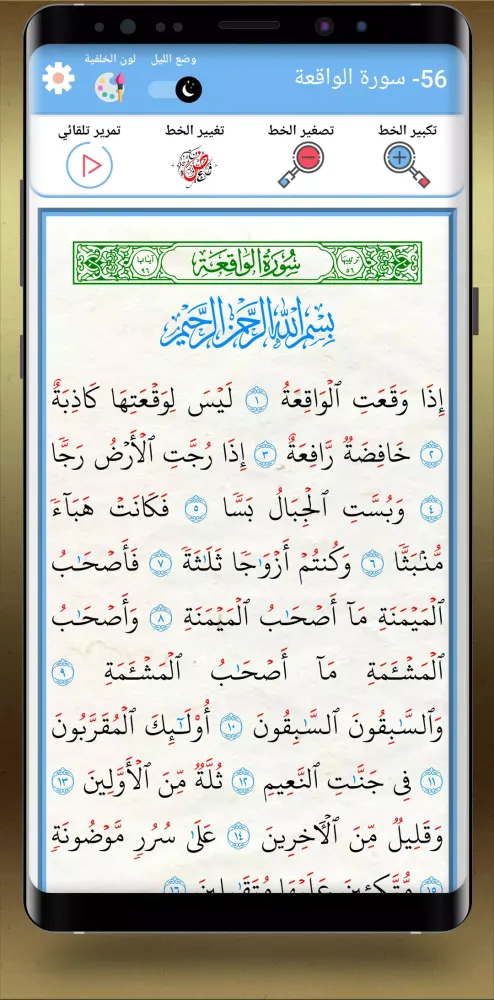 56- سورة الواقعة
وضع الليل
لون الخلفية
تكبير الخط
تصغير الخط
تغيير الخط
تمرير تلقائي
ترتيبها ٥٦
سُورَةُ الوَاقِعَة
آياتها ٩٦
بِسْمِ اللَّهِ الرَّحْمَٰنِ الرَّحِيمِ
إِذَا وَقَعَتِ ٱلْوَاقِعَةُ ١ لَيْسَ لِوَقْعَتِهَا كَاذِبَةٌ
٢ خَافِضَةٌ رَّافِعَةٌ ٣ إِذَا رُجَّتِ ٱلْأَرْضُ رَجًّا
٤ وَبُسَّتِ ٱلْجِبَالُ بَسًّا ٥ فَكَانَتْ هَبَآءً
مُّنۢبَثًّا ٦ وَكُنتُمْ أَزْوَٰجًا ثَلَٰثَةً ٧ فَأَصْحَٰبُ
ٱلْمَيْمَنَةِ مَآ أَصْحَٰبُ ٱلْمَيْمَنَةِ ٨ وَأَصْحَٰبُ
ٱلْمَشْـَٔمَةِ مَآ أَصْحَٰبُ ٱلْمَشْـَٔمَةِ ٩
وَٱلسَّٰبِقُونَ ٱلسَّٰبِقُونَ ١٠ أُو۟لَٰٓئِكَ ٱلْمُقَرَّبُونَ
١١ فِى جَنَّٰتِ ٱلنَّعِيمِ ١٢ ثُلَّةٌ مِّنَ ٱلْأَوَّلِينَ ١٣
وَقَلِيلٌ مِّنَ ٱلْآخِرِينَ ١٤ عَلَىٰ سُرُرٍ مَّوْضُونَةٍ
١٥ مُّتَّكِـِٔينَ عَلَيْهَا مُتَقَٰبِلِينَ ١٦